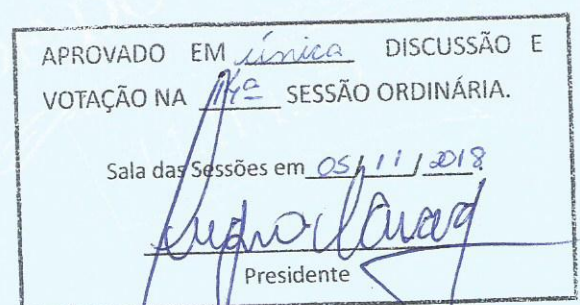 APROVADO EM única DISCUSSÃO E
VOTAÇÃO NA 14ª SESSÃO ORDINÁRIA.
Sala das Sessões em 05/11/2018
Presidente